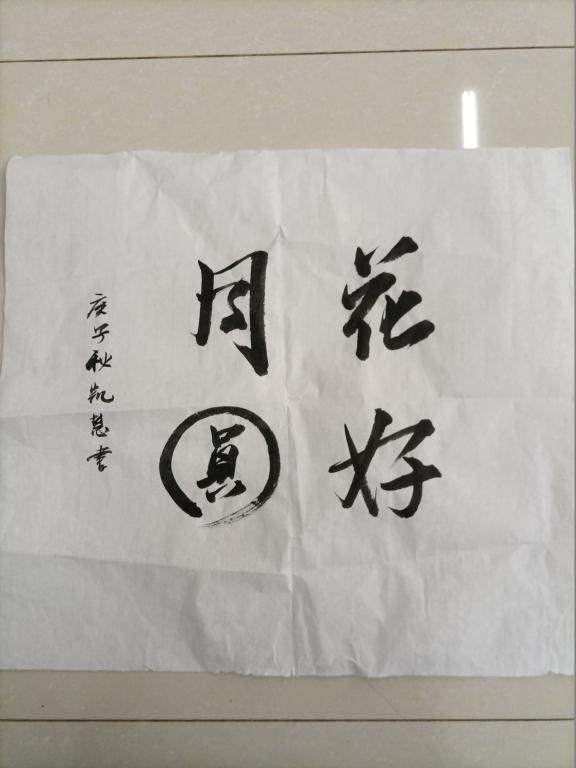 花好
月圓
庚子秋凯慧书